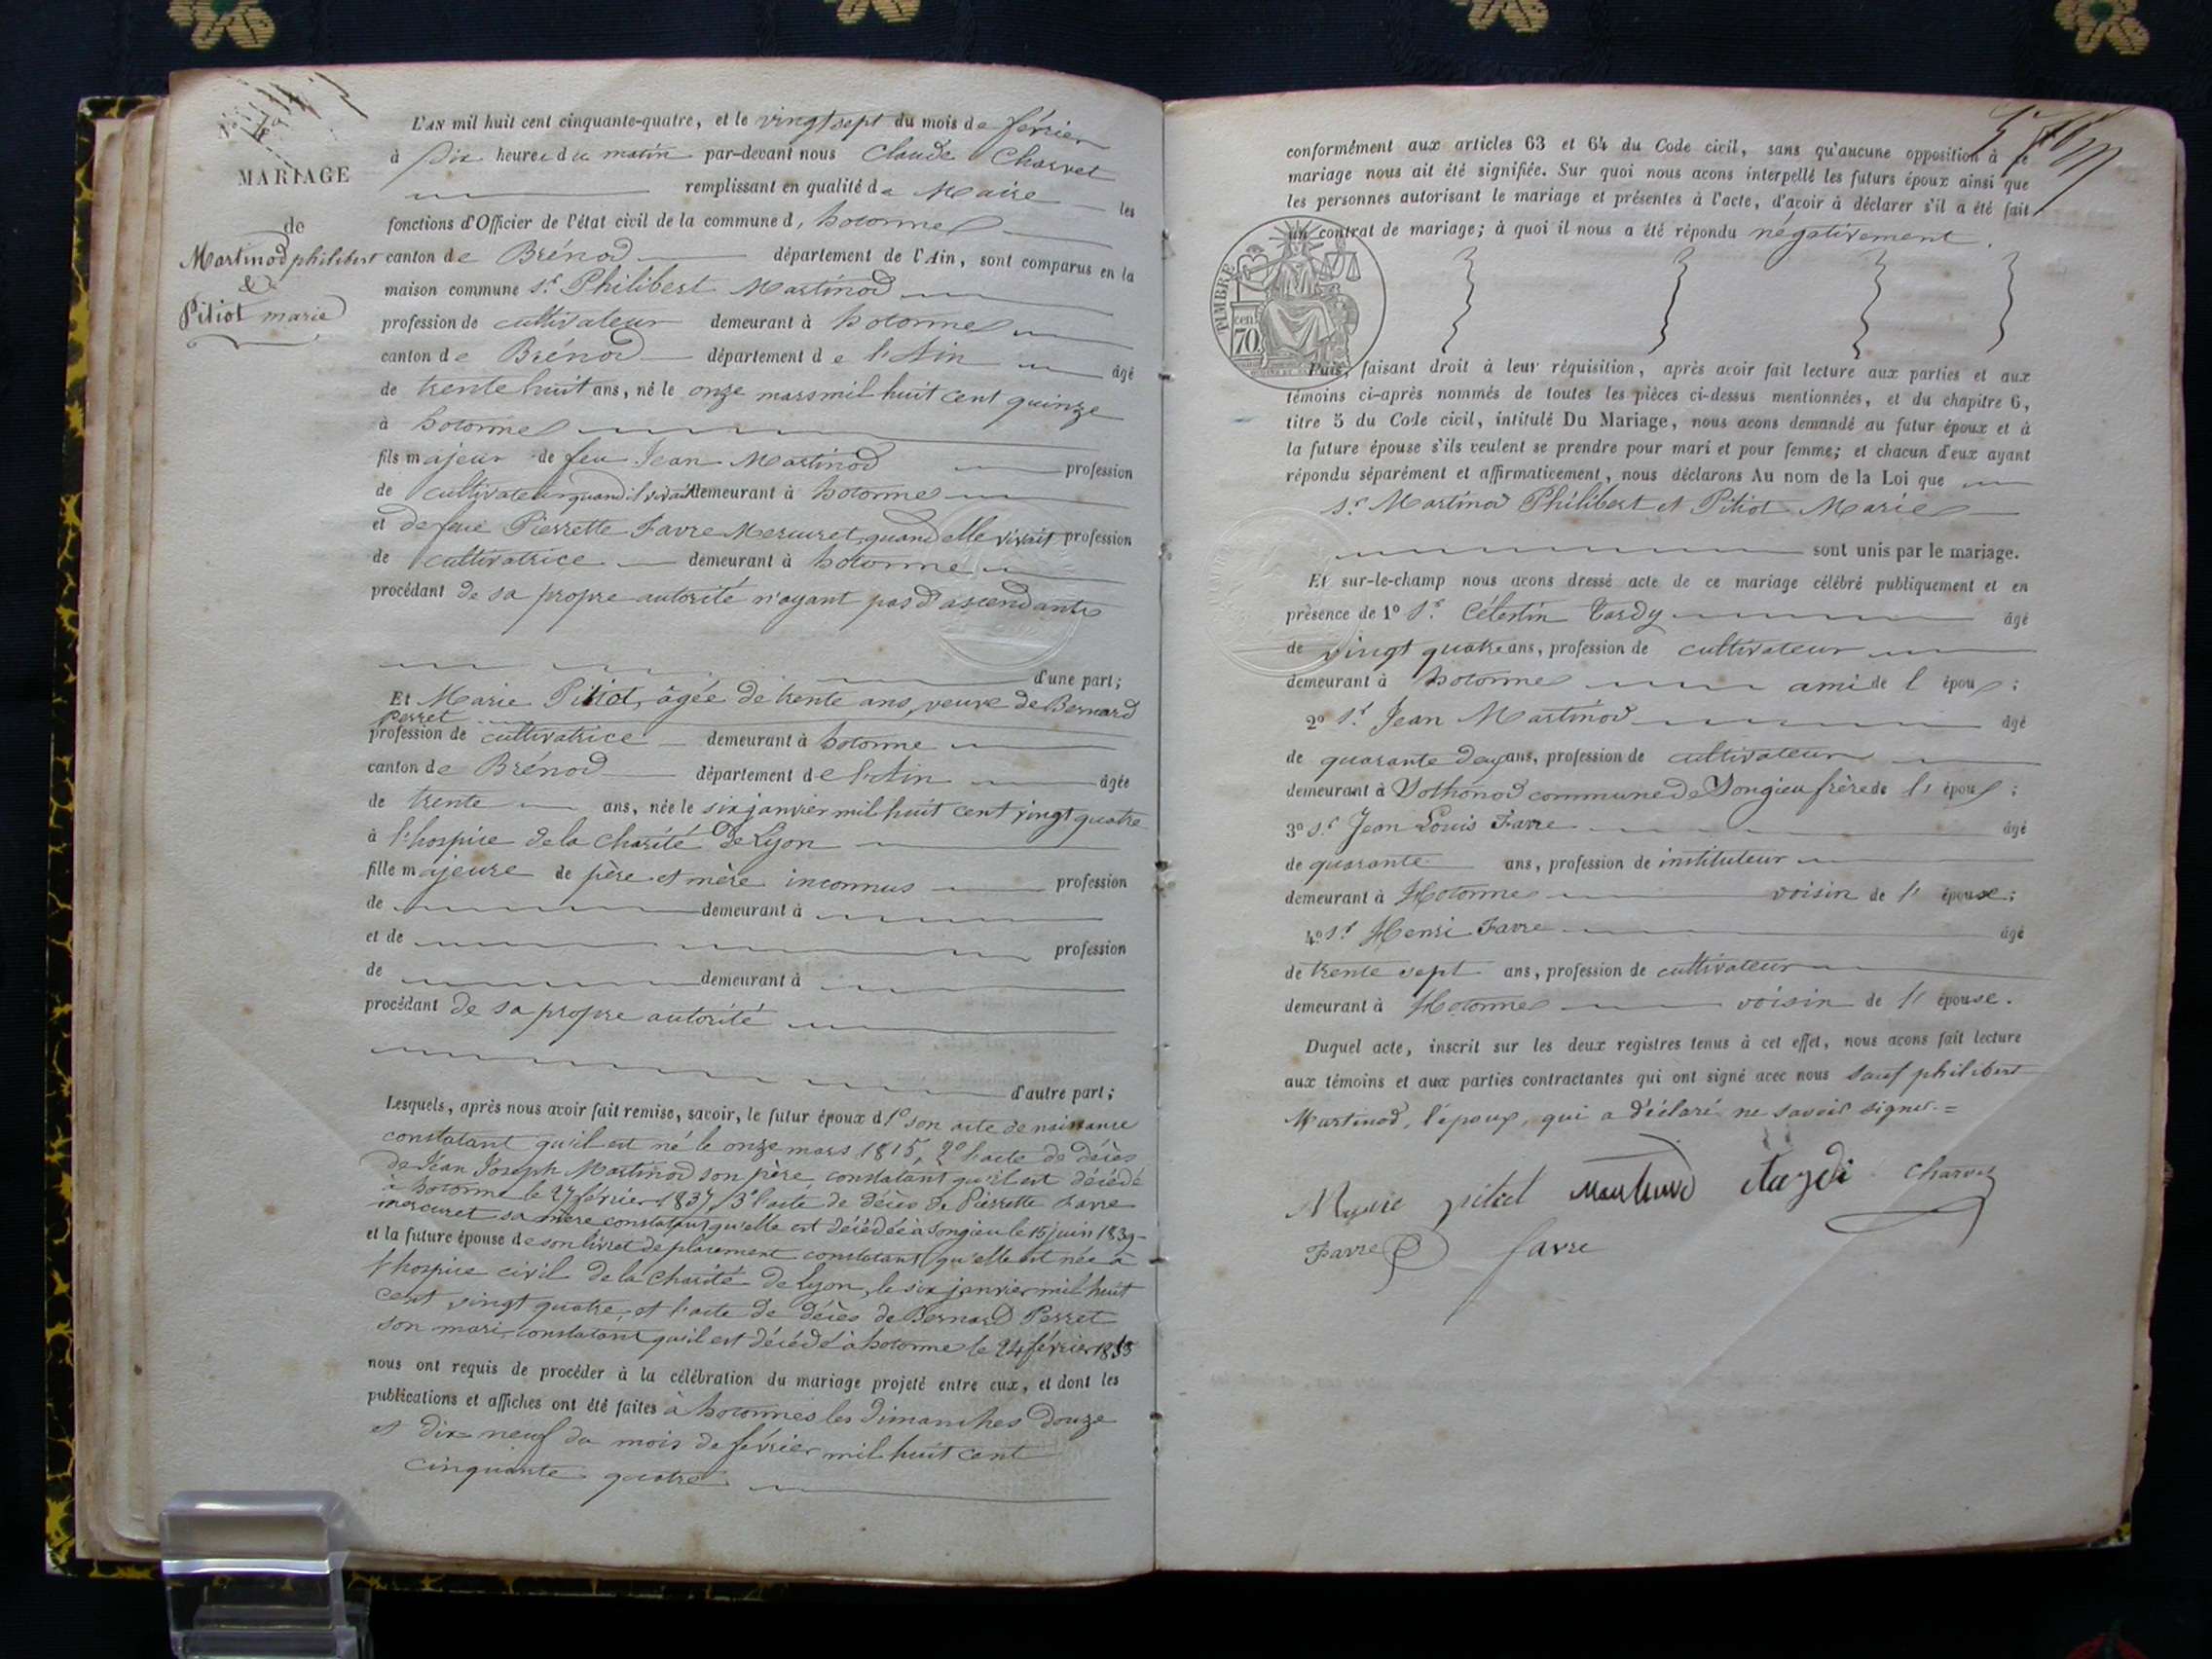 MARIAGE
de
Martinod philibert
&
Pitiot marie
L'AN mil huit cent cinquante-quatre, et le vingt sept du mois de février
à dix heures du matin par-devant nous Claude Charvet
remplissant en qualité de Maire les
fonctions d'Officier de l'état civil de la commune d, hotonnes
canton de Brénod département de l'Ain, sont comparus en la
maison commune Sr Philibert Martinod
profession de cultivateur demeurant à hotonnes
canton de Brénod département de l'Ain âgé
de trente huit ans, né le onze mars mil huit cent quinze
à hotonnes
fils majeur de feu Jean Martinod profession
de cultivateur quand il vivait demeurant à hotonnes
et de feue Pierrette Favre Mercuret, quand elle vivait profession
de cultivatrice demeurant à hotonne
procédant de sa propre autorité n'ayant pas d'ascendants
d'une part;
Et Marie Pitiot, âgée de trente ans, veuve de Bernard
perret
profession de cultivatrice demeurant à hotonne
canton de Brénod département de l'Ain âgée
de trente ans, née le six janvier mil huit cent vingt quatre
à l'hospice de la Charité de Lyon
fille majeure de père et mère inconnus profession
de demeurant à
et de profession
de demeurant à
procédant de sa propre autorité
d'autre part;
Lesquels, après nous avoir fait remise, savoir, le futur époux d 1o son acte de naissance
constatant qu'il est né le onze mars 1815, 2o l'acte de décès
de Jean Joseph Martinod son père, constatant qu'il est décédé
à hotonne le 27 février 1837, 3o l'acte de décès de Pierrette Favre
mercuret sa mère constatant qu'elle est décédée à Songieu le 15 juin 1839
et la future épouse de son livret de placement constatant qu'elle est née à
l'hospice civil de la Charité de Lyon, le six janvier mil huit
cent vingt quatre, et l'acte de décès de Bernard Perret
son mari constatant qu'il est décédé à hotonne le 24 février 1853
nous ont requis de procéder à la célébration du mariage projeté entre eux, et dont les
publications et affiches ont été faites à hotonnes les dimanches douze
et dix-neuf du mois de février mil huit cent
cinquante quatre
conformément aux articles 63 et 64 du Code civil, sans qu'aucune opposition à ce
mariage nous ait été signifiée. Sur quoi nous avons interpellé les futurs époux ainsi que
les personnes autorisant le mariage et présentes à l'acte, d'avoir à déclarer s'il a été fait
un contrat de mariage; à quoi il nous a été répondu négativement.
TIMBRE
cent
70.
Puis, faisant droit à leur réquisition, après avoir fait lecture aux parties et aux
témoins ci-après nommés de toutes les pièces ci-dessus mentionnées, et du chapitre 6,
titre 5 du Code civil, intitulé Du Mariage, nous avons demandé au futur époux et à
la future épouse s'ils veulent se prendre pour mari et pour femme; et chacun d'eux ayant
répondu séparément et affirmativement, nous déclarons Au nom de la Loi que
Sr Martinod Philibert et Pitiot Marie
sont unis par le mariage.
Et sur-le-champ nous avons dressé acte de ce mariage célébré publiquement et en
présence de 1o Sr. Célestin Tardy âgé
de vingt quatre ans, profession de cultivateur
demeurant à hotonnes ami de l époux;
2o Sr Jean Martinod âgé
de quarante deux ans, profession de cultivateur
demeurant à Vothonod commune de Songieu frère de l' époux;
3o Sr Jean Louis Favre âgé
de quarante ans, profession de instituteur
demeurant à Hotonnes voisin de l' épouse;
4o Sr Henri Favre âgé
de trente sept ans, profession de cultivateur
demeurant à Hotonnes voisin de l' épouse.
Duquel acte, inscrit sur les deux registres tenus à cet effet, nous avons fait lecture
aux témoins et aux parties contractantes qui ont signé avec nous sauf philibert
Martinod, l'époux, qui a déclaré ne savoir signer. =
Marie pitiot Martinod tardi Charvet
Favre favre